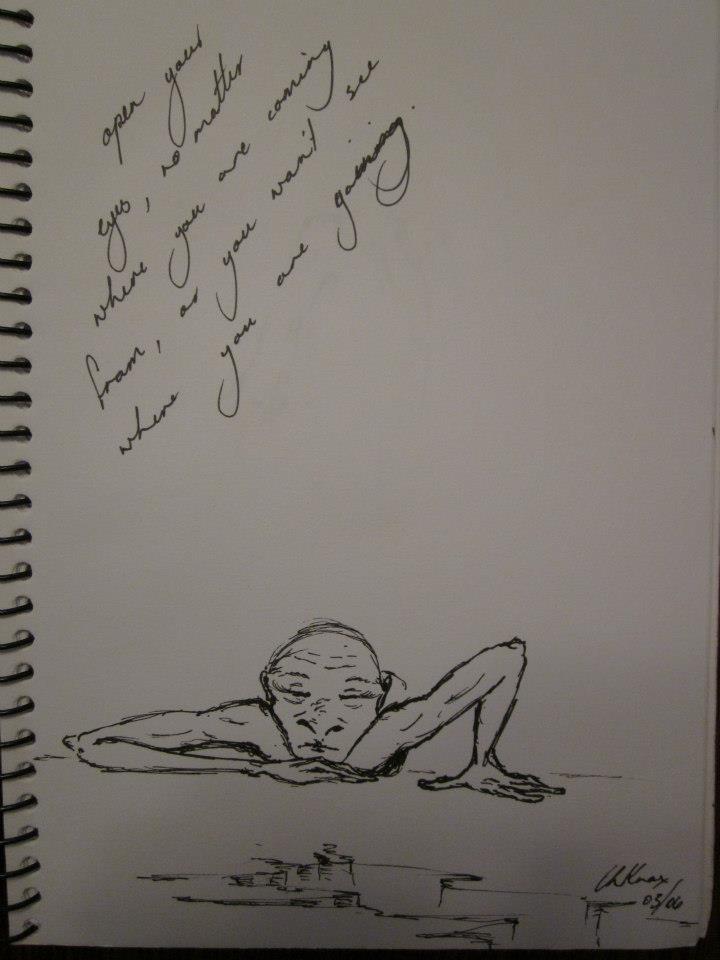 open your
eyes, no matter
where you are coming
from, or you wan't see
where you are goining.
Knox
03/06